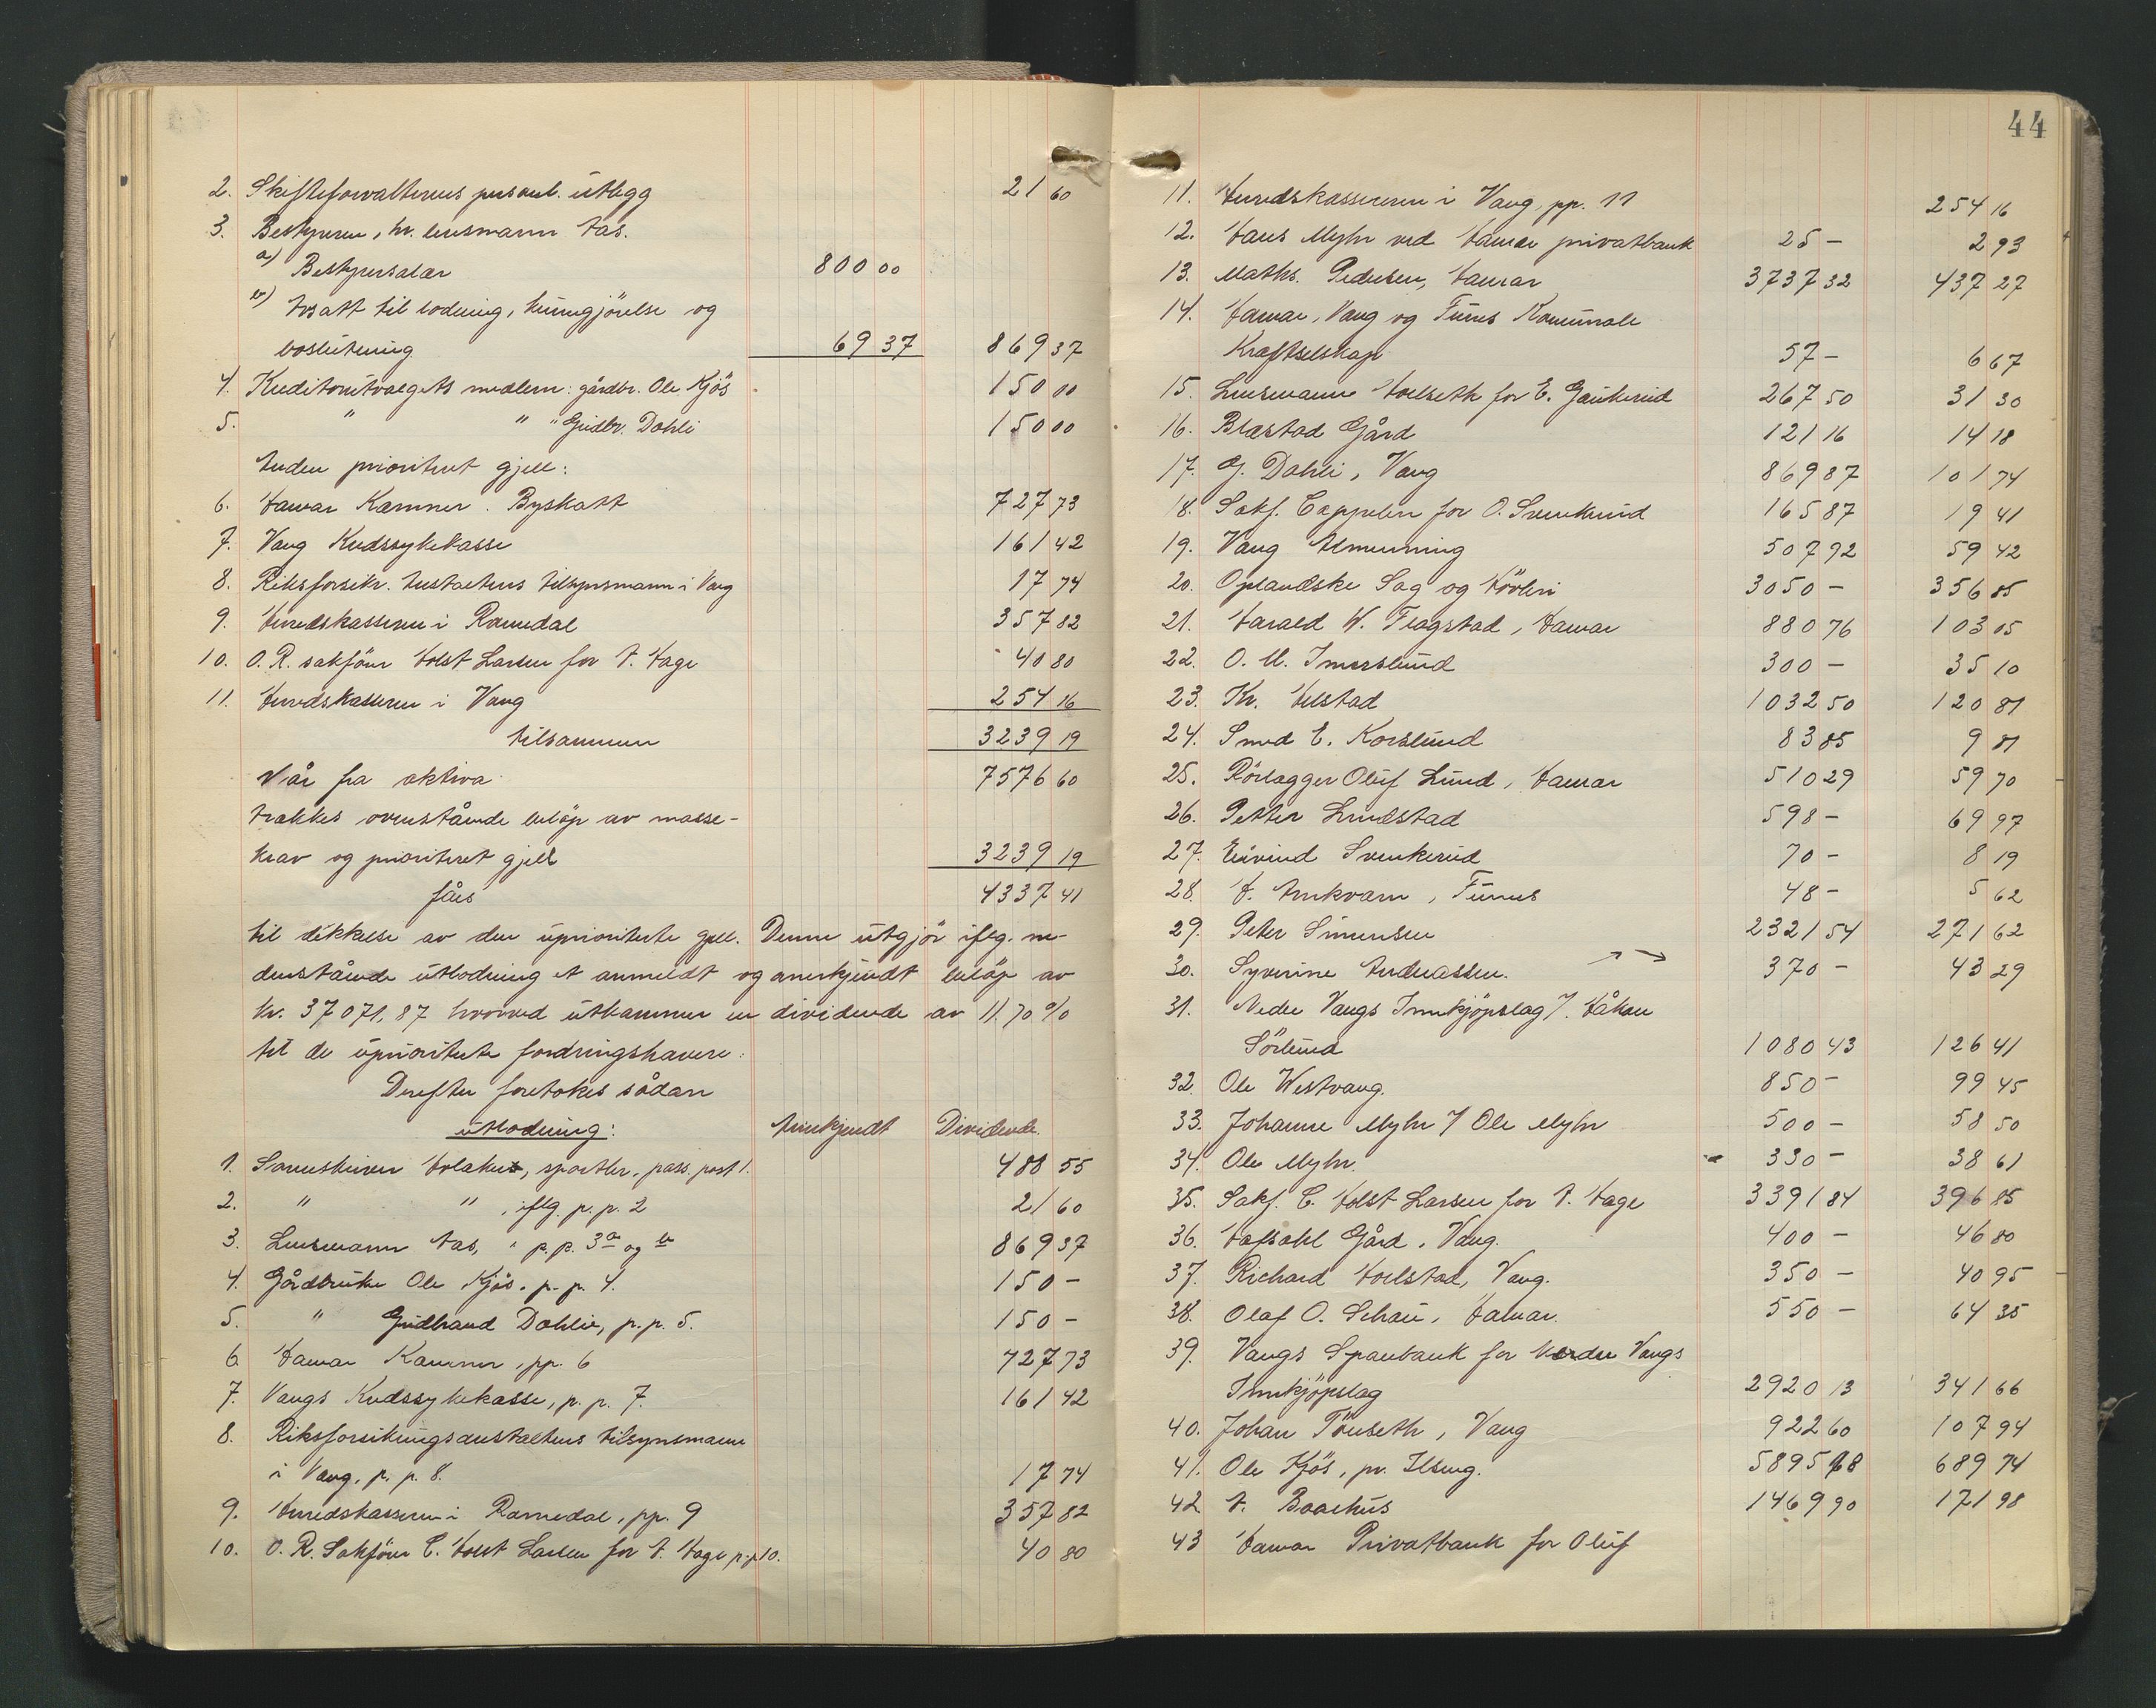 2. Skifteforvalterens personl. utlegg 21 60
3. Bestyreren, hr. lensmann Aas.
a) Bestyrersalær 800 00
b) Avsatt til lodning, kunngjörelse og
boslutning 69 37 869 37
4. Kreditorutvalgets medlem: gårdbr. Ole Kjös 150 00
5. " " " Gudbr. Dahli 150 00
Anden prioritert gjeld:
6. Hamar Kæmner. Byskatt 727 73
7. Vang Kredssykekasse 161 42
8. Riksforsikr. Anstaltens tilsynsmann i Vang 17 74
9. Herredskasserer i Romedal 357 82
10. O. R. sakförer Holst Larsen for H. Hage 40 80
11. Herredskasserer i Vang 254 16
tilsammen 3239 19
Når fra aktiva 7576 60
trækkes ovenstående beløp av masse-
krav og prioritert gjeld 3239 19
fåes 4337 41
til dekkelse av den uprioriterte gjeld. Denne utgjör iflg. ne-
denstående utlodning et anmeldt og anerkjendt beløp av
kr. 37 071,87 hvorved utkommer en dividende av 11.70 %
til de uprioriterte fordringshavere:
Derefter foretokes sådan
utlodning: Anerkjendt Dividende.
1. Sorenskriver sportler, pass. post 1. 488 55
2. " " , iflg. p. p. 2 21 60
3. Lensmann Aas, " p. p. 3 a og b 869 37
4. Gårdbruker Ole Kjös. p. p. 4. 150 -
5. " Gudbrand Dahli, p. p. 5. 150 -
6. Hamar Kæmner, pp. 6 727 73
7. Vangs Kredssykekasse, p. p. 7. 161 42
8. Riksforsikringsanstaltens tilsynsmann
i Vang, p. p. 8. 17 74
9. Herredskasserer i Romedal, pp. 9 357 82
10. O. R. Sakförer C. Holst Larsen for H. Hage p. p 10. 40 80
44
11. Herredskassereren i Vang, pp. 11 254 16
12. Hans Myhr ved Hamar privatbank 25 - 2 93
13. Maths. Pedersen, Hamar 3737 32 437 27
14. Hamar, Vang og Furnes Komunale
Kraftselskap 57 - 6 67
15. Lensmann Hoelseth for E. Gaukerud 267 50 31 30
16. Blæstad Gård 121 16 14 18
17. G. Dahli, Vang 869 87 101 74
18. Sakf. Cappelen for O. Svenkerud 165 87 19 41
19. Vang Almenning 507 92 59 42
20. Oplandske Sag og Hövleri 3050 - 356 85
21. Harald W. Flagstad, Hamar 880 76 103 05
22. O. M. Imerslund 300 - 35 10
23. Kr. Helstad 1032 50 120 81
24. Smed E. Korslund 83 85 9 81
25. Rörlægger Oluf Lund, Hamar 510 29 59 70
26. Petter Lundstad 598 - 69 97
27. Eivind Svenkerud 70 - 8 19
28. H. Arnkværn, Furnes 48 - 5 62
29. Peter Simensen 2321 54 271 62
30. Syverine Andreassen. 370 - 43 29
31. Nedre Vangs Innkjöpslag / Håkon
Sörlund 1080 43 126 41
32. Ole Westvang. 850 - 99 45
33. Johanne Myhr / Ole Myhr 500 - 58 50
34. Ole Myhr. 330 - 38 61
35. Sakf. C. Holst Larsen for H. Hage 3391 84 396 85
36. Hafsahl Gård, Vang. 400 - 46 80
37. Richard Hoelstad, Vang. 350 - 40 95
38. Olaf O. Schau, Hamar. 550 - 64 35
39. Vangs Sparebank for Nordre Vangs
Innkjöpslag 2920 13 341 66
40. Johan Tönseth, Vang 922 60 107 94
41. Ole Kjös, pr. Ilseng. 5895 68 689 74
42 H. Baarhus 1469 90 171 98
43 Hamar Privatbank for Oluf